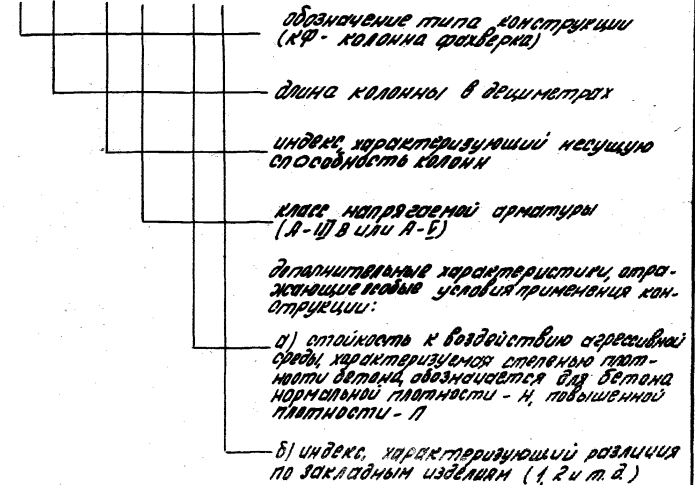 обозначение типа конструкции
(КФ - колонна фахверка)
длина колонны в дециметрах
индекс, характеризующий несущую
способность колонн
класс напрягаемой арматуры
(А-IIIв или А-V)
дополнительные характеристики, отра-
жающие особые условия применения кон-
струкции:
а) стойкость к воздействию агрессивной
среды, характеризуемая степенью плот-
ности бетона, обозначается для бетона
нормальной плотности - Н, повышенной
плотности - П
б) индекс, характеризующий различия
по закладным изделиям (1, 2 и т.д.)